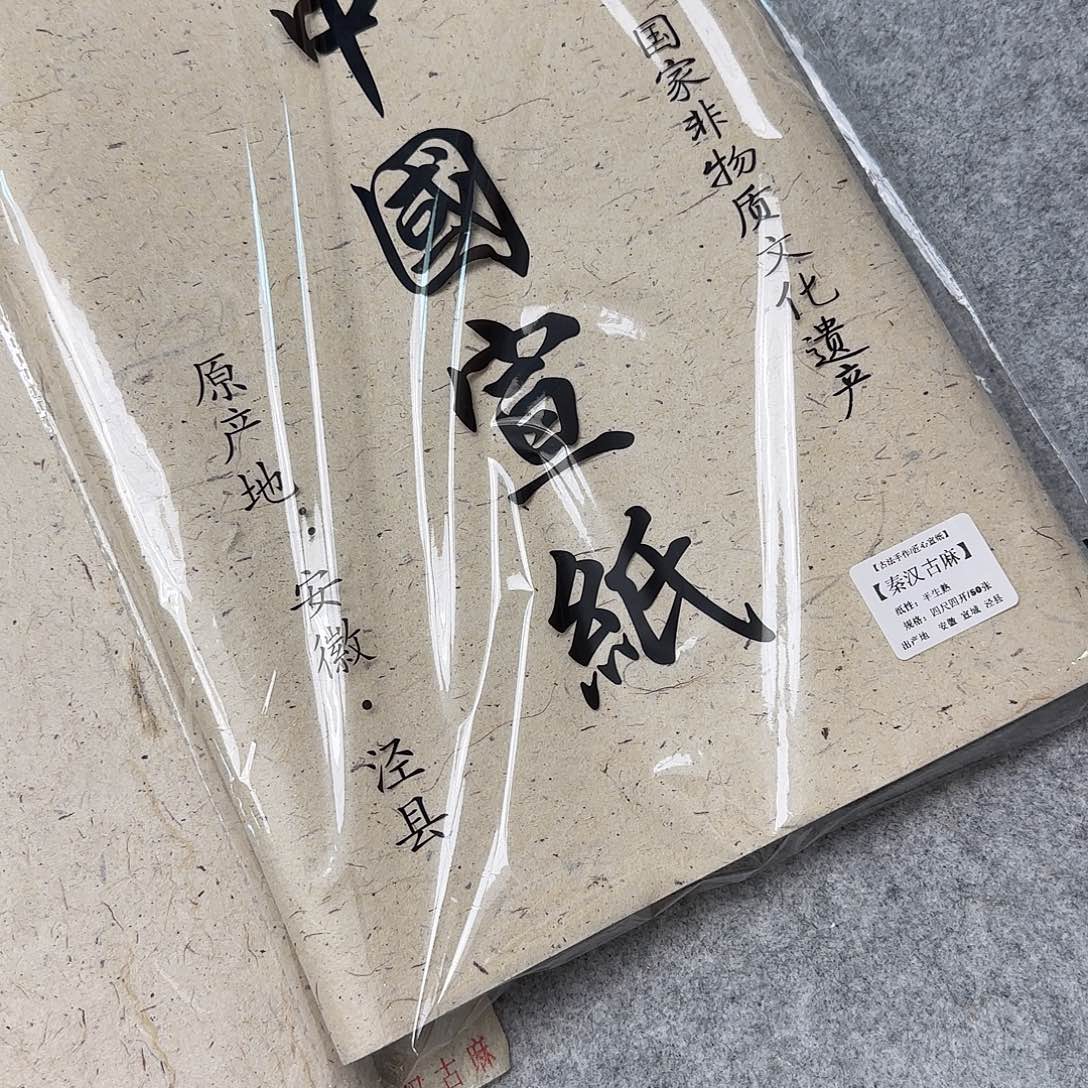 国家非物质文化遗产
中國宣紙
原产地·安徽·泾县
【古法手作/匠心宣纸】
【秦汉古麻】
纸性：半生熟
规格：四尺四开/50张
出产地 安徽 宣城 泾县
汉古麻